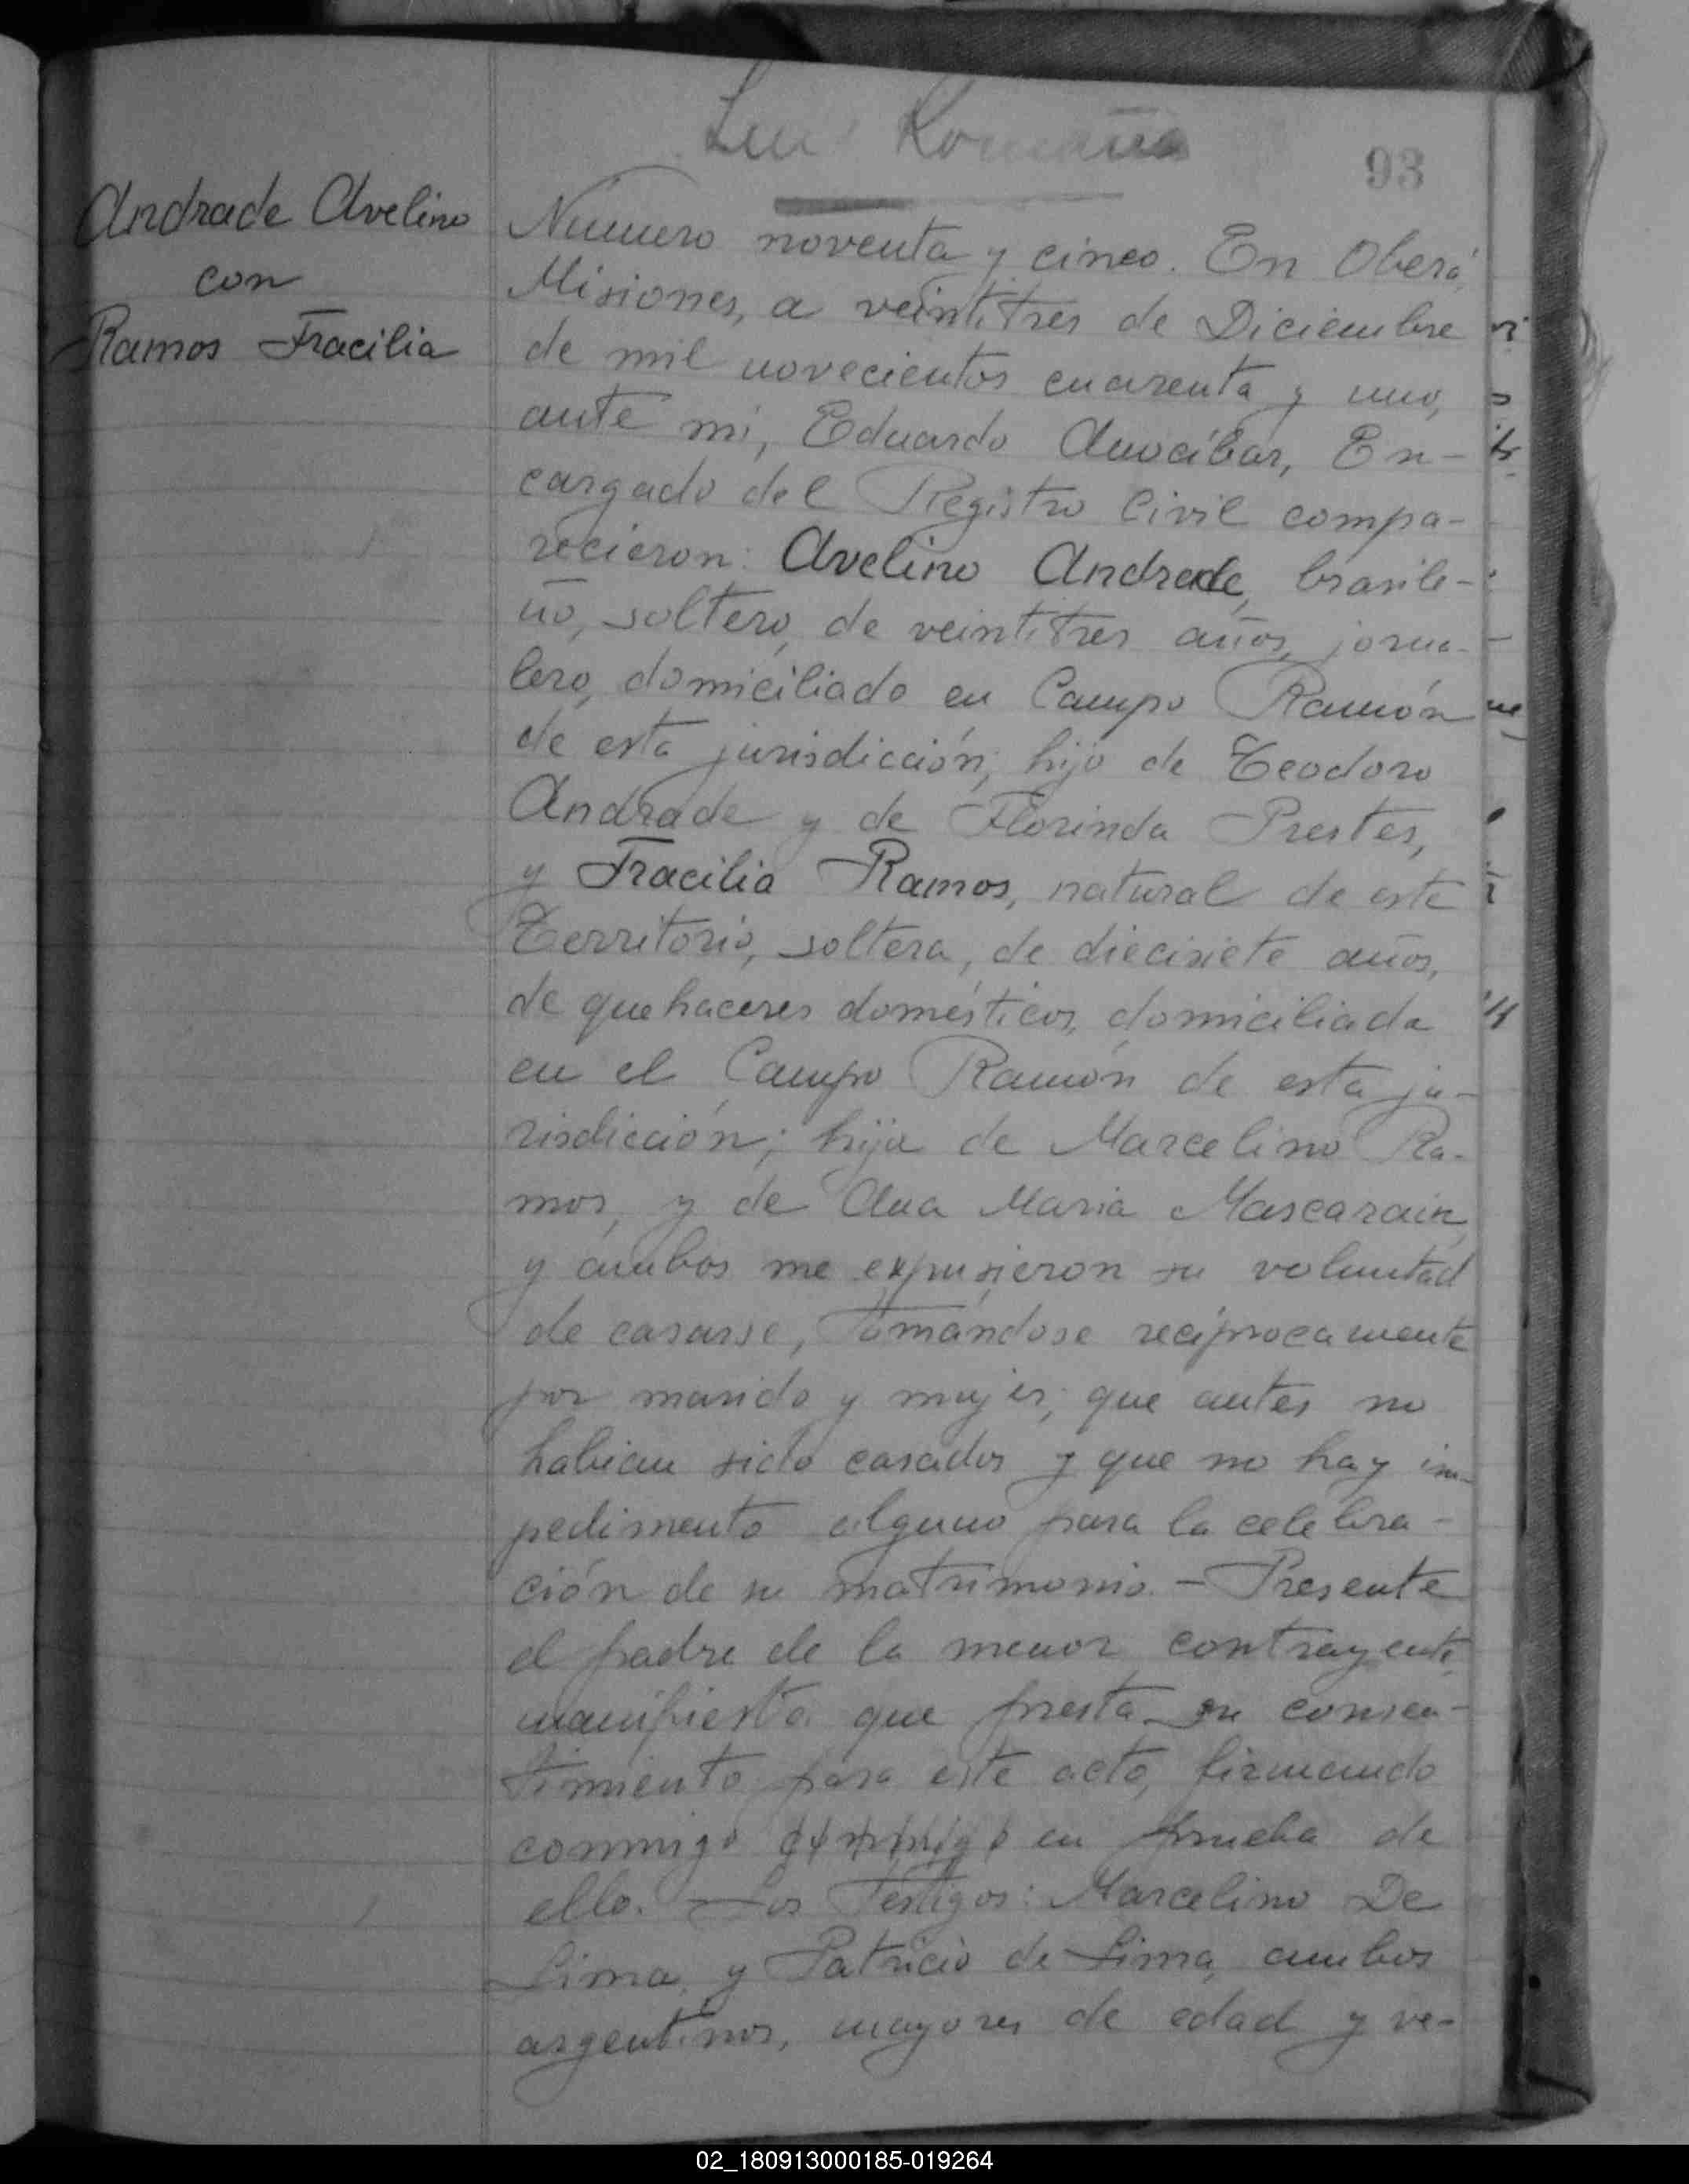 Luis Romaña
93
Andrade Avelino
con
Ramos Fracilia
Número noventa y cinco. En Oberá,
Misiones, a veintitres de Diciembre
de mil novecientos cuarenta y uno,
ante mi, Eduardo Anocíbar, En-
cargado del Registro Civil compa-
recieron: Avelino Andrade, brasile-
ño, soltero, de veintitres años, jorna-
lero, domiciliado en Campo Ramón
de esta jurisdicción; hijo de Teodoro
Andrade y de Florinda Prestes,
y Fracilia Ramos, natural de este
Territorio, soltera, de diecisiete años,
de quehaceres domésticos, domiciliada
en el Campo Ramón de esta ju-
risdicción; hija de Marcelino Ra-
mos, y de Ana Maria Mascarain,
y ámbos me expusieron su voluntad
de casarse, tomándose recíprocamente
por marido y mujer; que antes no
habian sido casados y que no hay im-
pedimento alguno para la celebra-
ción de su matrimonio. - Presente
el padre de la menor contrayente
manifiesta que presta su consen-
timiento para este acto, firmando
conmigo conmigo en prueba de
ello. - Los Testigos: Marcelino De
Lima, y Patricio de Lima, ambos
argentinos, mayores de edad y ve-
02_180913000185-019264